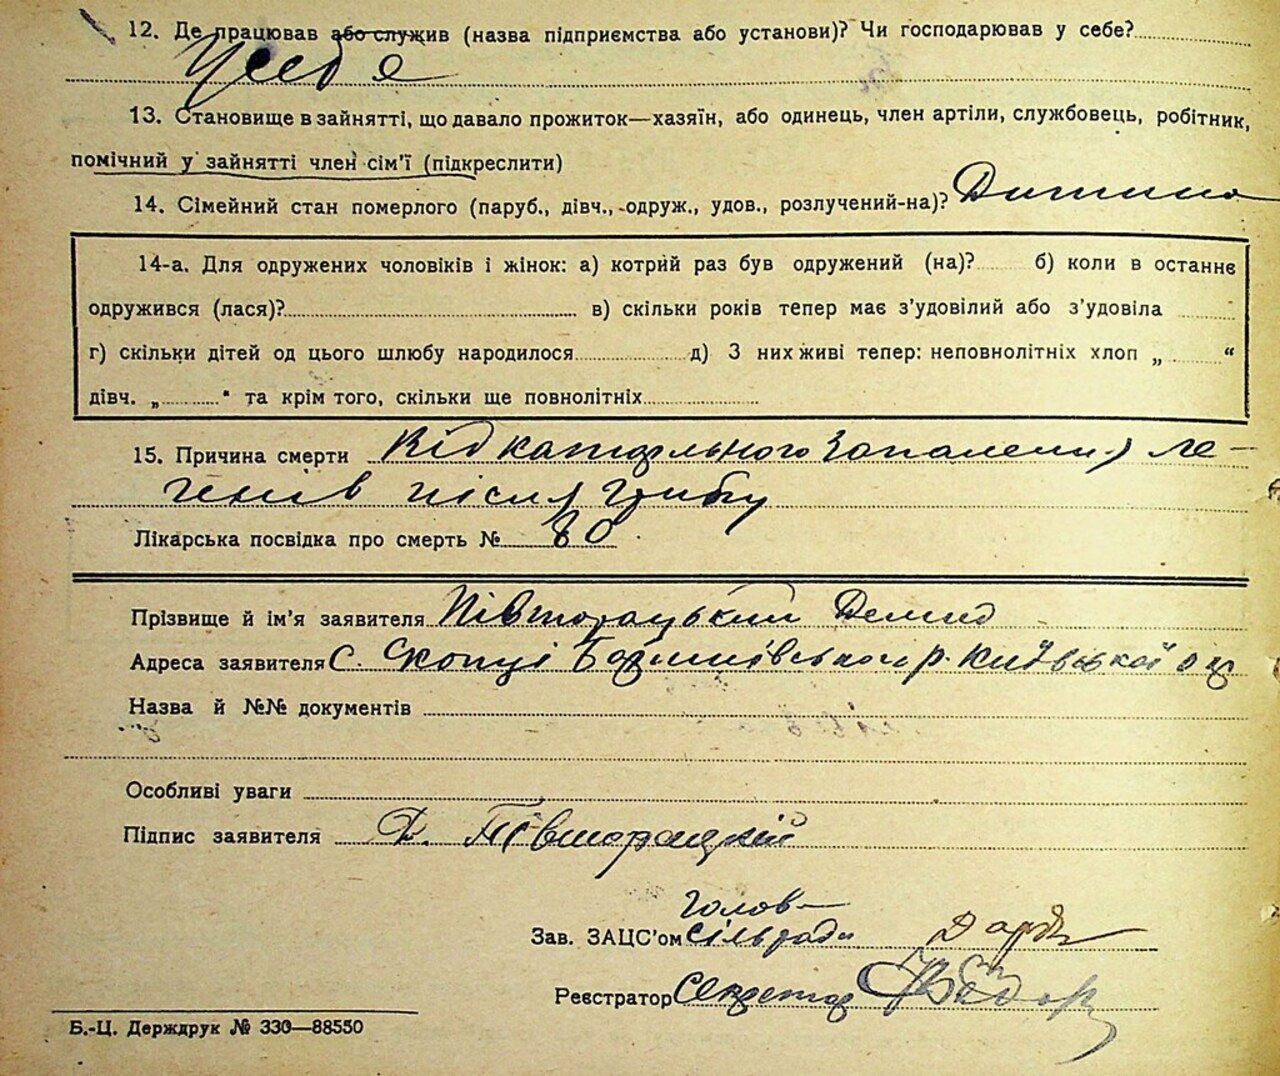 12. Де працював або служив (назва підприємства або установи)? Чи господарював у себе?
У себе
13. Становище в зайнятті, що давало прожиток—хазяїн, або одинець, член артіли, службовець, робітник,
помічний у зайнятті член сім'ї (підкреслити)
14. Сімейний стан померлого (паруб., дівч., одруж., удов., розлучений-на)? Дитина
14-а. Для одружених чоловіків і жінок: а) котрий раз був одружений (на)? б) коли в останнє
одружився (лася)? в) скільки років тепер має з'удовілий або з'удовіла
г) скільки дітей од цього шлюбу народилося д) З них живі тепер: неповнолітніх хлоп „ “
дівч. „ " та крім того, скільки ще повнолітніх
15. Причина смерти Від катарального запалення ле-
генів після грипу
Лікарська посвідка про смерть № 80
Прізвище й ім'я заявителя Півторацький Демид
Адреса заявителя С. Скопці Баришівського р. Київської
Назва й №№ документів
Особливі уваги
Підпис заявителя Д. Півторацкій
Голов
Зав. ЗАЦС'ом сільради
Реєстратор Секретар
Б.-Ц. Держдрук № 330—88550